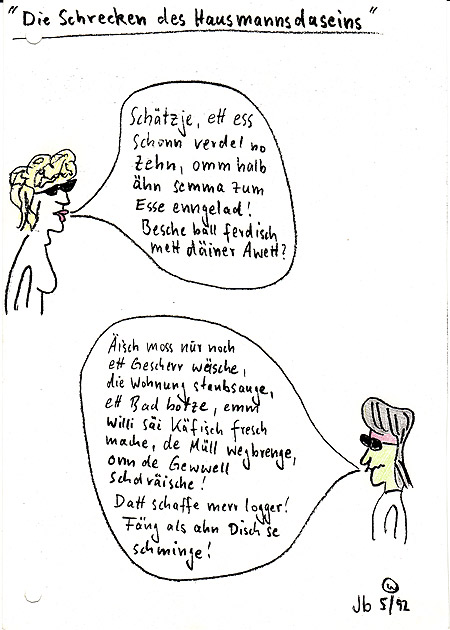 "Die Schrecken des Hausmannsdaseins"
Schätzje, ett ess
schonn verdel no
zehn, omm halb
ähn semma zum
Esse enngelad!
Besche ball ferdisch
mett däiner Awett?
Äisch moss nür noch
ett Gescherr wäsche,
die Wohnung staubsauge,
ett Bad botze, emm
Willi säi Käfisch fresch
mache, de Müll wegbrenge,
onn de Gewwell
schdräische!
Datt schaffe merr logger!
Fäng als ahn Disch se
schminge!
Jb 5/92